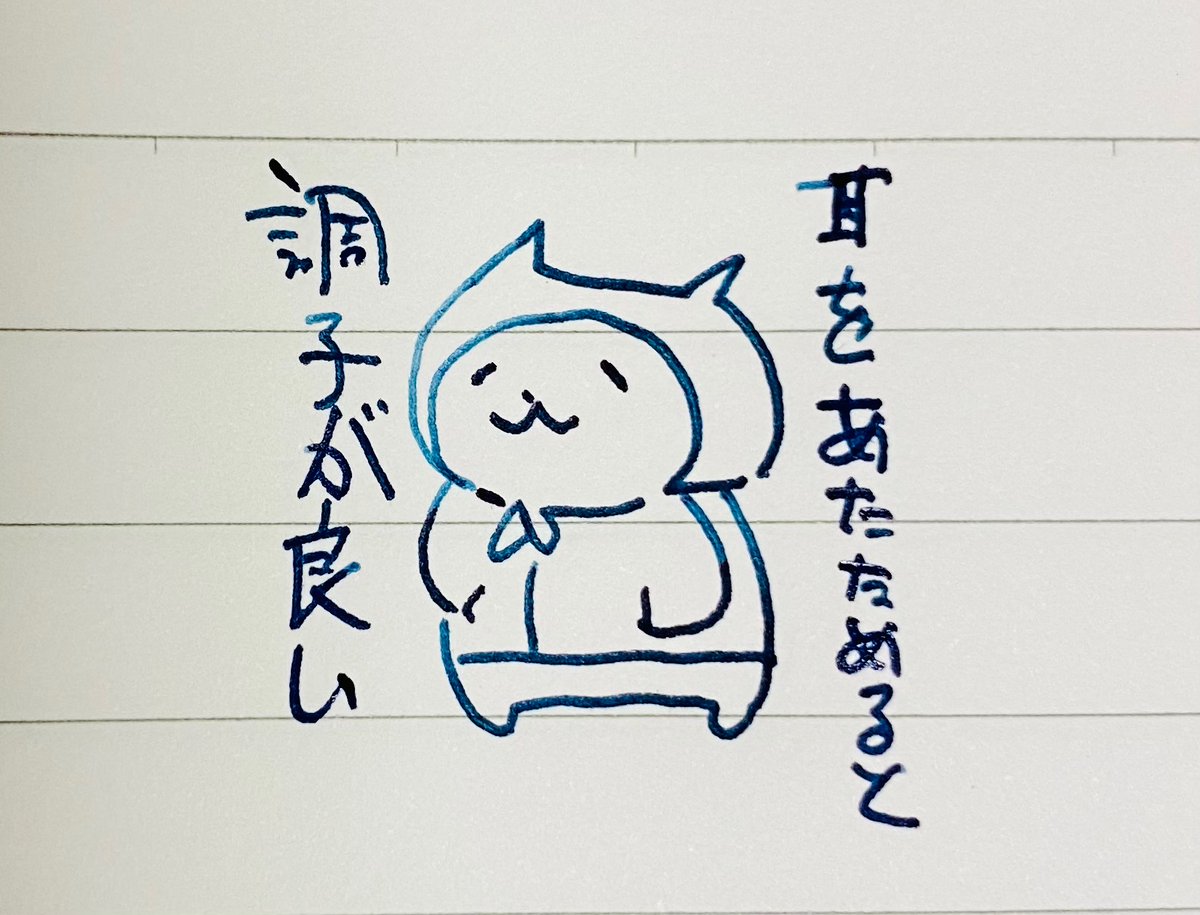 耳をあたためると
調子が良い